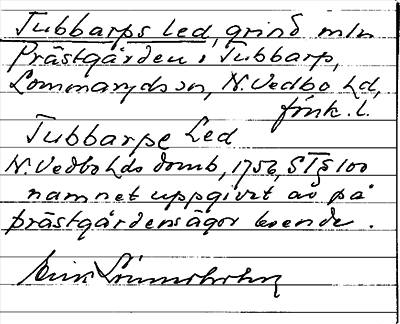 Tubbarps led, grind mln
Prästgården i Tubbarp,
Lommaryds sn, N. Vedbo hd,
försk. l.
Tubbarpe Led
N. Vedbo hds domb, 1756, ST § 100
namnet uppgivet av på
prästgårdens ägor boende.